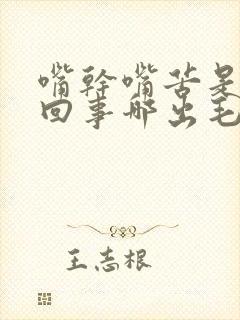 嘴幹嘴苦是
回事哪出毛
王志根